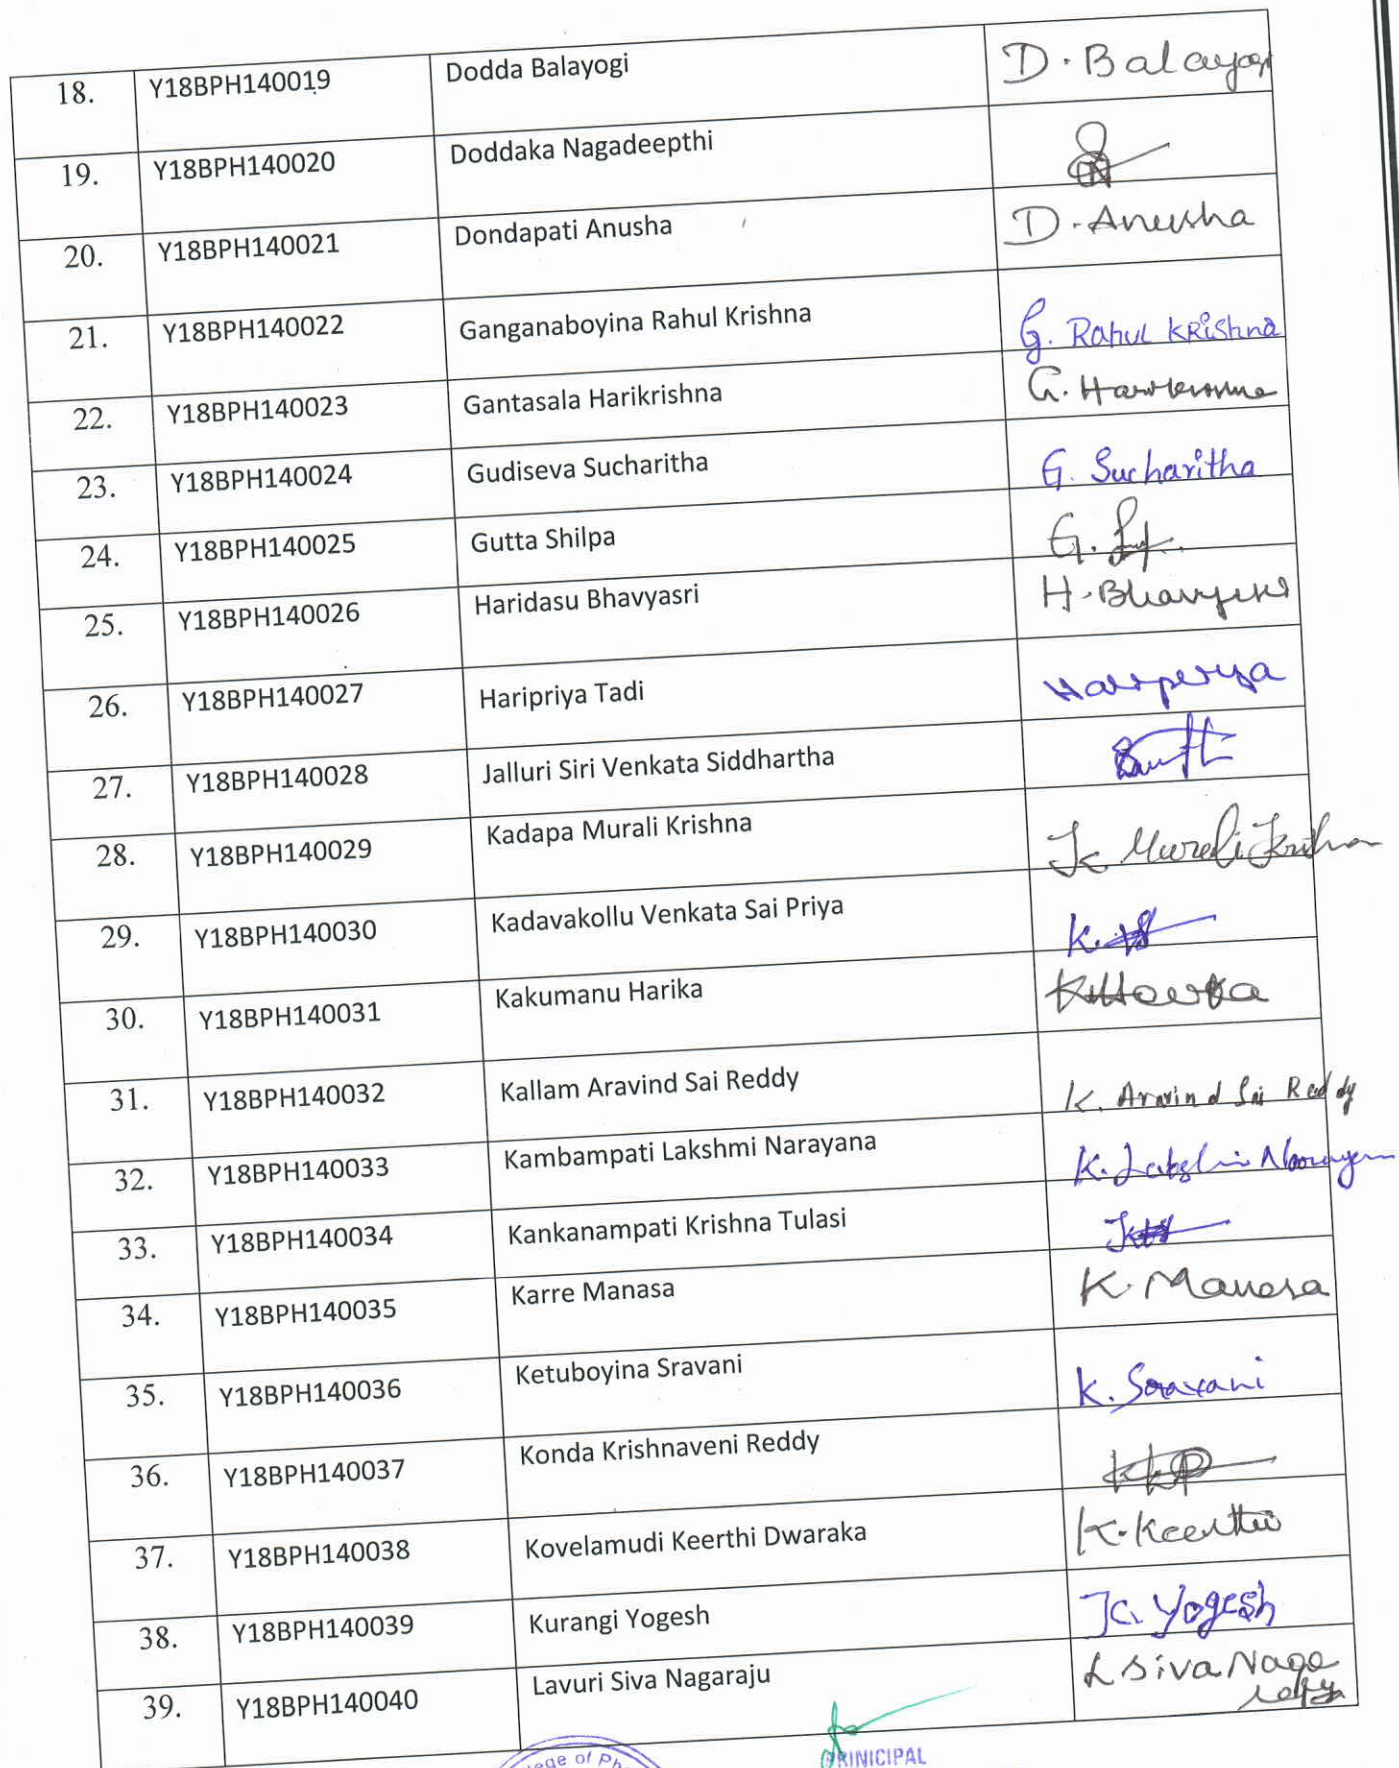 18. Y18BPH140019 Dodda Balayogi D. Balayogi
19. Y18BPH140020 Doddaka Nagadeepthi
20. Y18BPH140021 Dondapati Anusha D. Anusha
21. Y18BPH140022 Ganganaboyina Rahul Krishna G. Rahul KRiShna
22. Y18BPH140023 Gantasala Harikrishna G. Harikrishna
23. Y18BPH140024 Gudiseva Sucharitha G. Sucharitha
24. Y18BPH140025 Gutta Shilpa G.
25. Y18BPH140026 Haridasu Bhavyasri H. Bhavyasri
26. Y18BPH140027 Haripriya Tadi Haripriya
27. Y18BPH140028 Jalluri Siri Venkata Siddhartha
28. Y18BPH140029 Kadapa Murali Krishna K. Murali Krishna
29. Y18BPH140030 Kadavakollu Venkata Sai Priya K.
30. Y18BPH140031 Kakumanu Harika K. Harika
31. Y18BPH140032 Kallam Aravind Sai Reddy K. Aravind Sai Reddy
32. Y18BPH140033 Kambampati Lakshmi Narayana K. Lakshmi Narayana
33. Y18BPH140034 Kankanampati Krishna Tulasi
34. Y18BPH140035 Karre Manasa K. Manasa
35. Y18BPH140036 Ketuboyina Sravani K. Sravani
36. Y18BPH140037 Konda Krishnaveni Reddy
37. Y18BPH140038 Kovelamudi Keerthi Dwaraka K. Keerthi
38. Y18BPH140039 Kurangi Yogesh K. Yogesh
39. Y18BPH140040 Lavuri Siva Nagaraju L Siva Naga
of Ph
PRINICIPAL